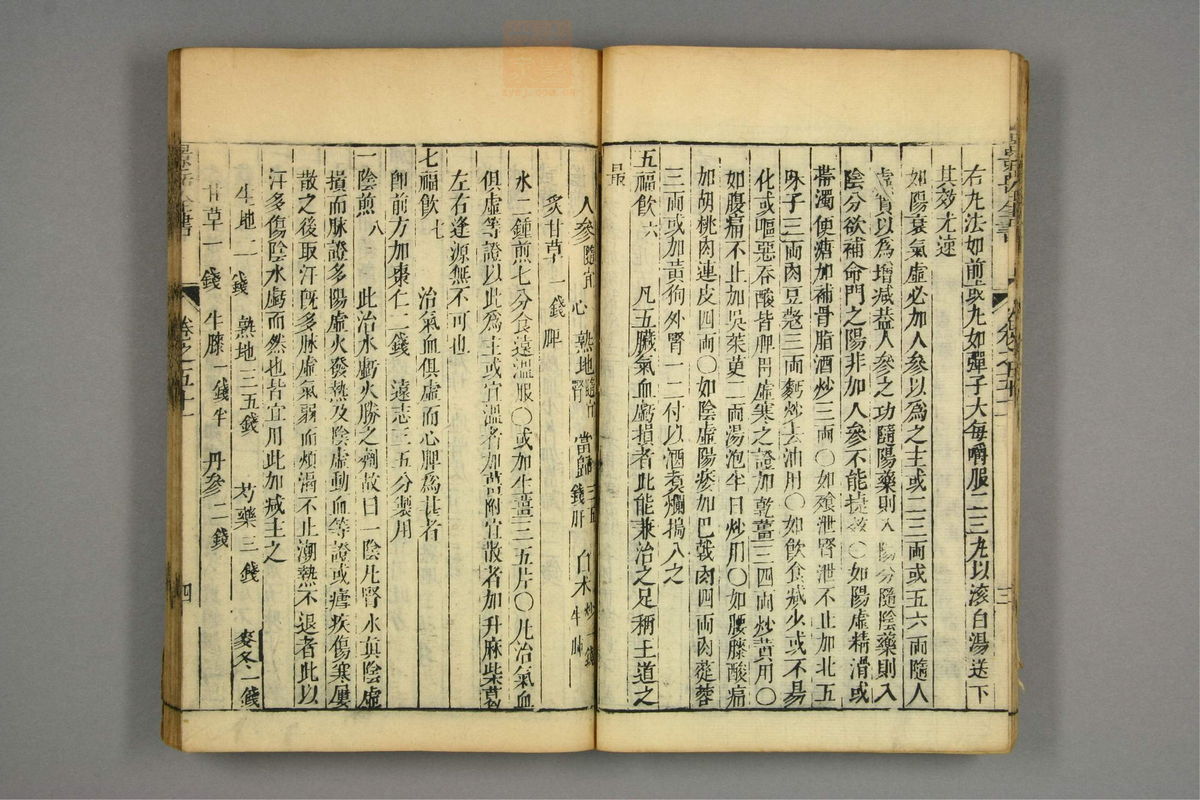 右丸法如前或丸如彈子大每嚼服二三丸以滚白湯送下
其效尤速
如陽衰氣虛必加人參以爲之主或二三兩或五六兩隨人
虛實以為增減葢人參之功隨陽藥則入陽分隨陰藥則入
陰分欲補命門之陽非加人參不能捷效〇如陽虛精滑或
帶濁便溏加補骨脂酒炒三兩〇如飱泄腎泄不止加北五
味子三兩肉豆蔻三兩麪炒去油用〇如飲食減少或不易
化或嘔惡吞酸皆脾胃虛寒之證加乾薑三四兩炒黃用〇
如腹痛不止加吳茱萸二兩湯泡半日炒用〇如腰膝酸痛
加胡桃肉連皮四兩〇如陰虛陽痿加巴戟肉四兩肉蓯蓉
三兩或加黃狗外腎一二付以酒煮爛搗入之
五福飲 六 凡五臟氣血虧損者此能兼治之足稱王道之
最
人參隨宜 心 熟地隨宜 腎 當歸二三錢 肝 白术炒一錢半 肺
炙甘草一錢 脾
水二鍾煎七分食遠溫服〇或加生薑三五片〇凡治氣血
俱虛等證以此爲主或宜溫者加薑附宜散者加升麻柴葛
左右逢源無不可也
七福飲 七 治氣血俱虛而心脾爲甚者
卽前方加棗仁二錢 遠志三五分製用
一陰煎 八 此治水虧火勝之劑故曰一陰凡腎水眞陰虛
損而脉證多陽虛火發熱及陰虛動血等證或瘧疾傷寒屢
散之後取汗旣多脉虛氣弱而煩渴不止潮熱不退者此以
汗多傷陰水虧而然也皆宜用此加減主之
生地二錢 熟地三五錢 芍藥二錢 麥冬二錢
甘草一錢 牛膝一錢半 丹參二錢
卷之五十一
四